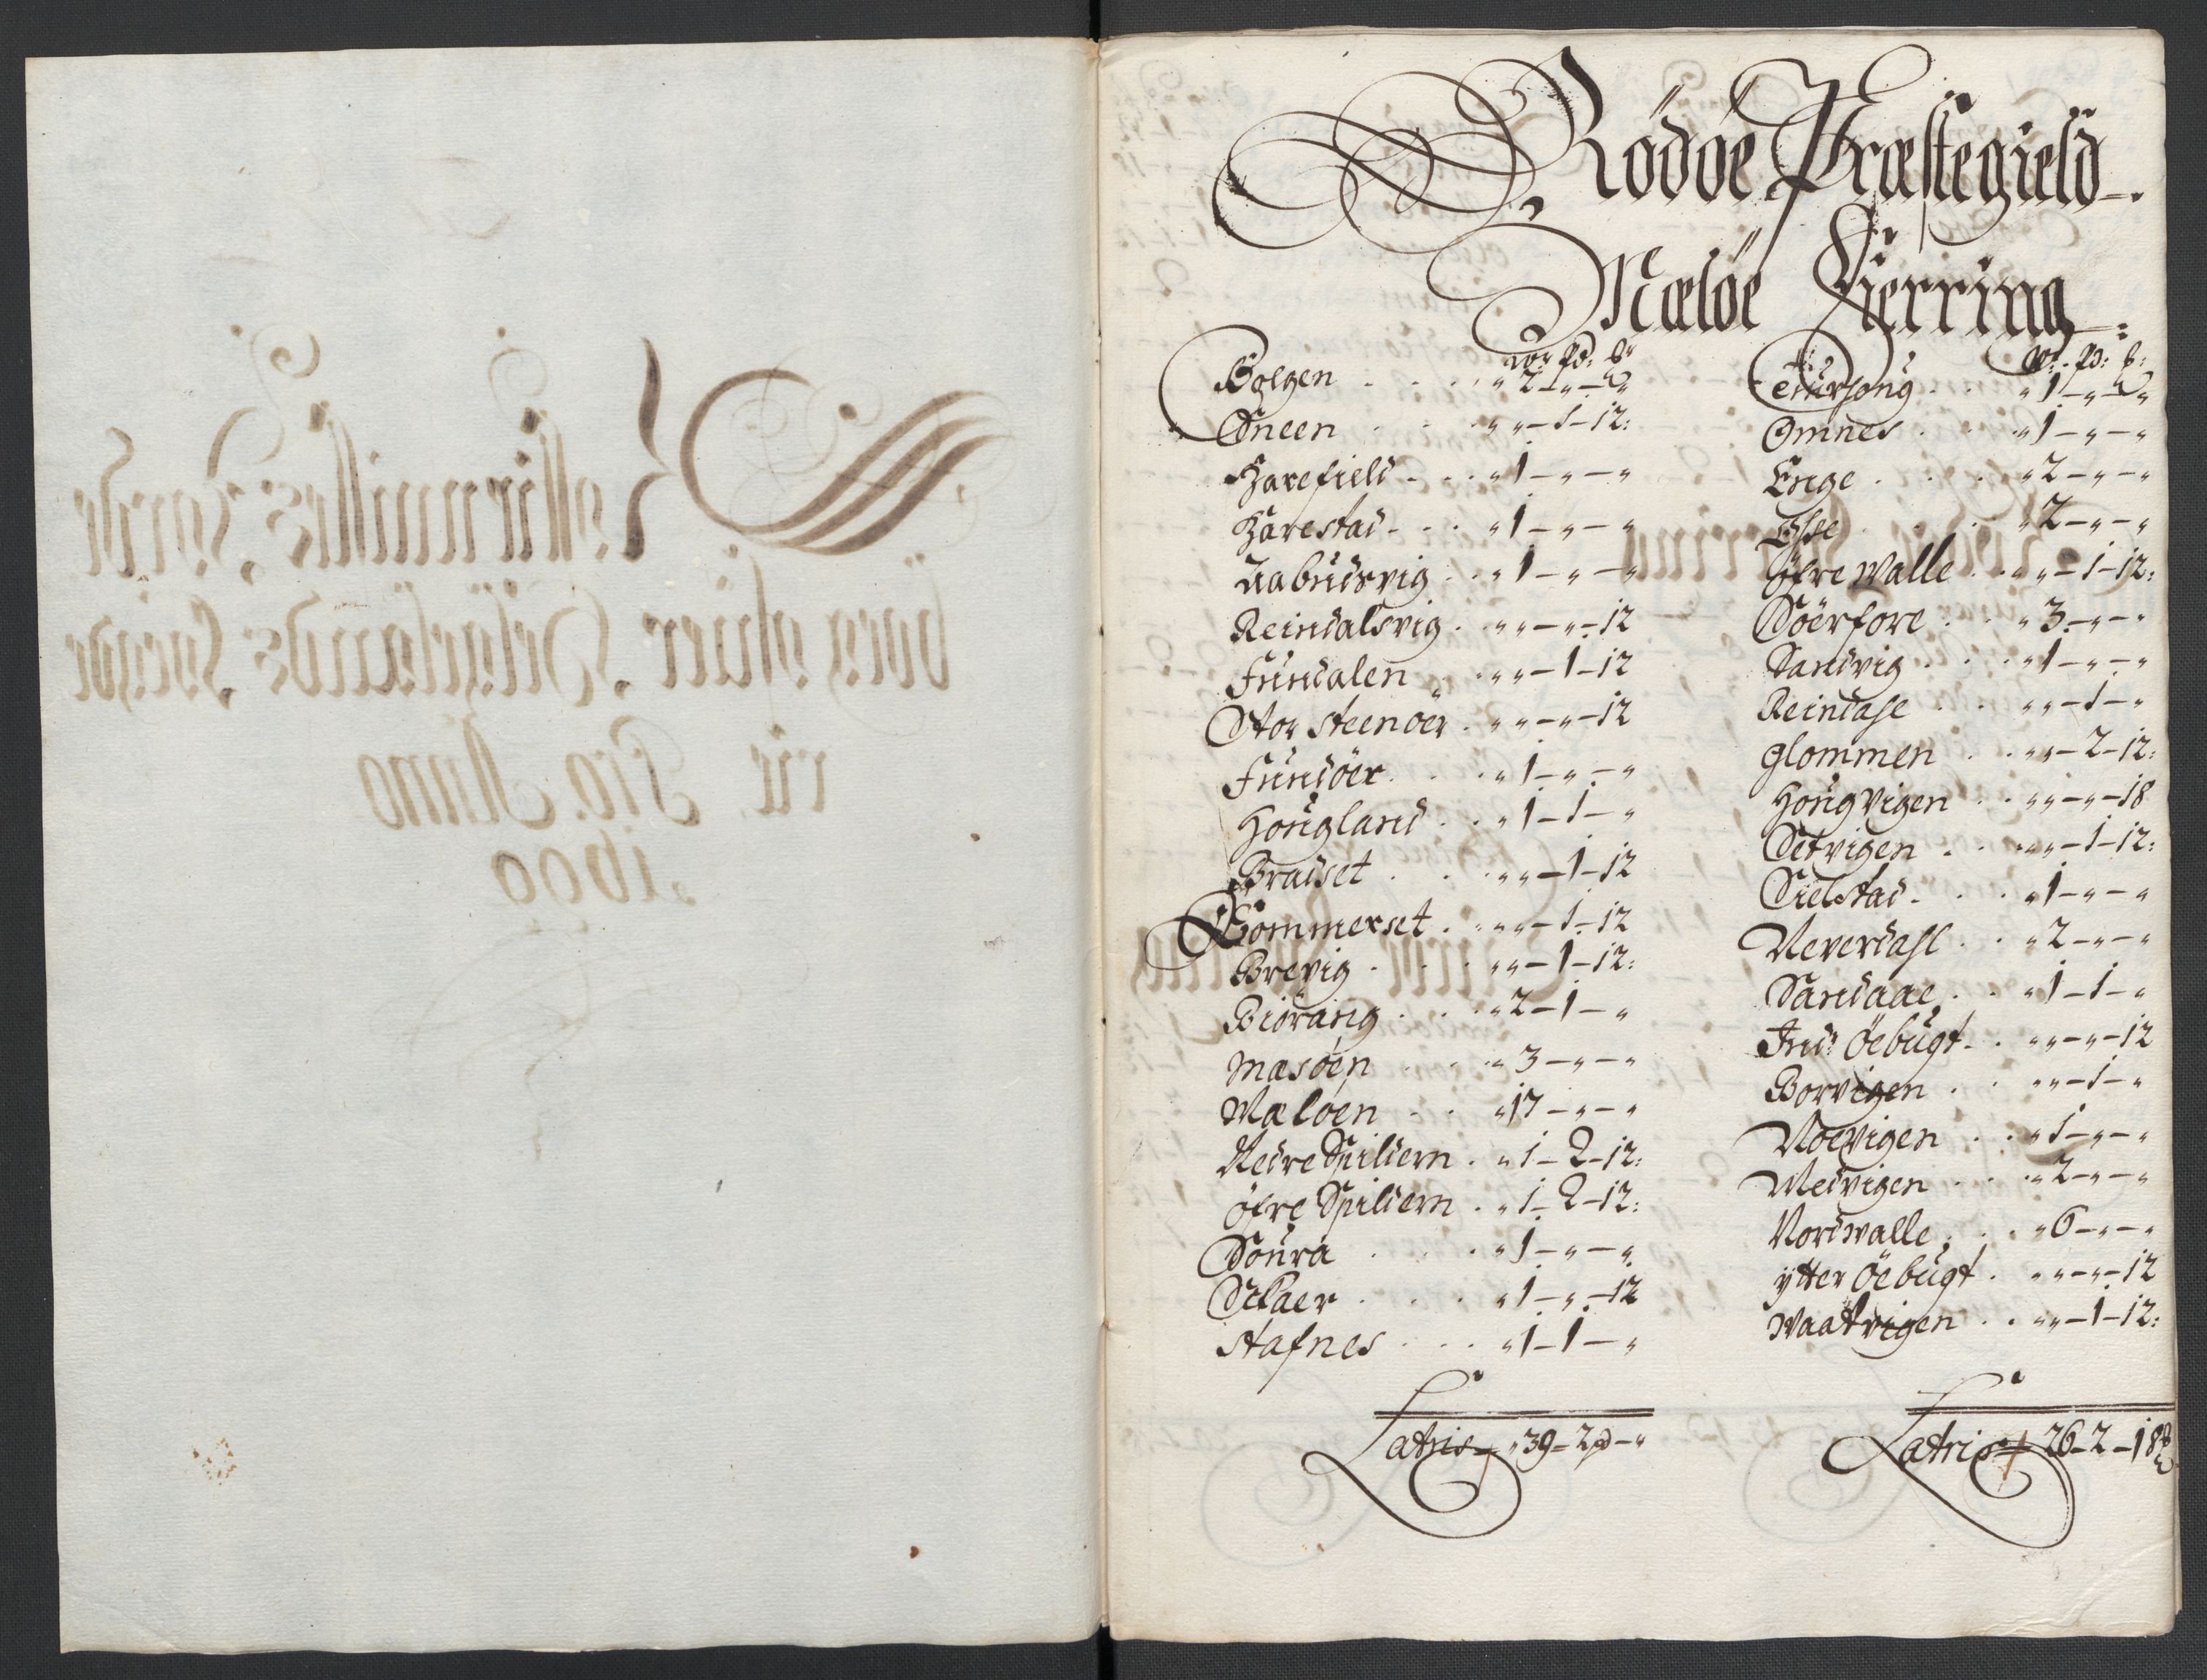 Rödöe Præstegield.
Mæløe Fierring
W: pd: ℔:
Bolgen . . . " 2 - " - "
Sneen . . " " - 1 - 12:
Harefield . . . " 1 - " - "
Harestad . . . " 1 - " - "
Aabudsvig . . " 1 - " - "
Reindalsvig . " " - " - 12
Fundalen . " " - 1 - 12
Stor Steenöer . " " - " - 12
Fundöer . . . " 1 - " - "
Hougland . . " 1 - 1 - "
Bradset . . . " " - 1 - 12
Bommerset . " " - 1 - 12
Brevig . . . " " - 1 - 12:
Biörang . . . " 2 - 1 - "
Mæsöen . . . " 3 - " - "
Mæløen . . " 17 - " - "
Nedre Spildern . " 1 - 2 - 12:
öfre Spildern . " 1 - 2 - 12:
Soura . . . " 1 - " - "
Selaer . . . " 1 - " - 12
Stafnes . . . " 1 - 1 - "
Latris " 39 - 2 pd - "
W: pd: ℔:
" 1 - " - "
Omnes . . . " 1 - " - "
Enge . . . " 2 - " - "
" 2 - " - "
öfre Walle . . " " - 1 - 12:
Söerfore . . " 3 - " - "
Sandvig . . . " 1 - " - "
Reindahl . . " " - 1 - "
Glommen . . " " - 2 - 12:
Hougvigen . . " " - " - 18
Setvigen . . " " - 1 - 12:
Sielstad . . . " 1 - " - "
Neverdahl . . " 2 - " - "
Sandaae . . " 1 - 1 - "
Ind: Öebugt . . " " - " - 12
Borvigen . . " " - 1 - "
Noevigen . . " 1 - " - "
Medvigen . . . " 2 - " - "
Nordwalle . . " 6 - " - "
ytter Öebugt . " " - " - 12
Waatvigen . . " " - 1 - 12:
Latris 26 - 2 - 18 ℔